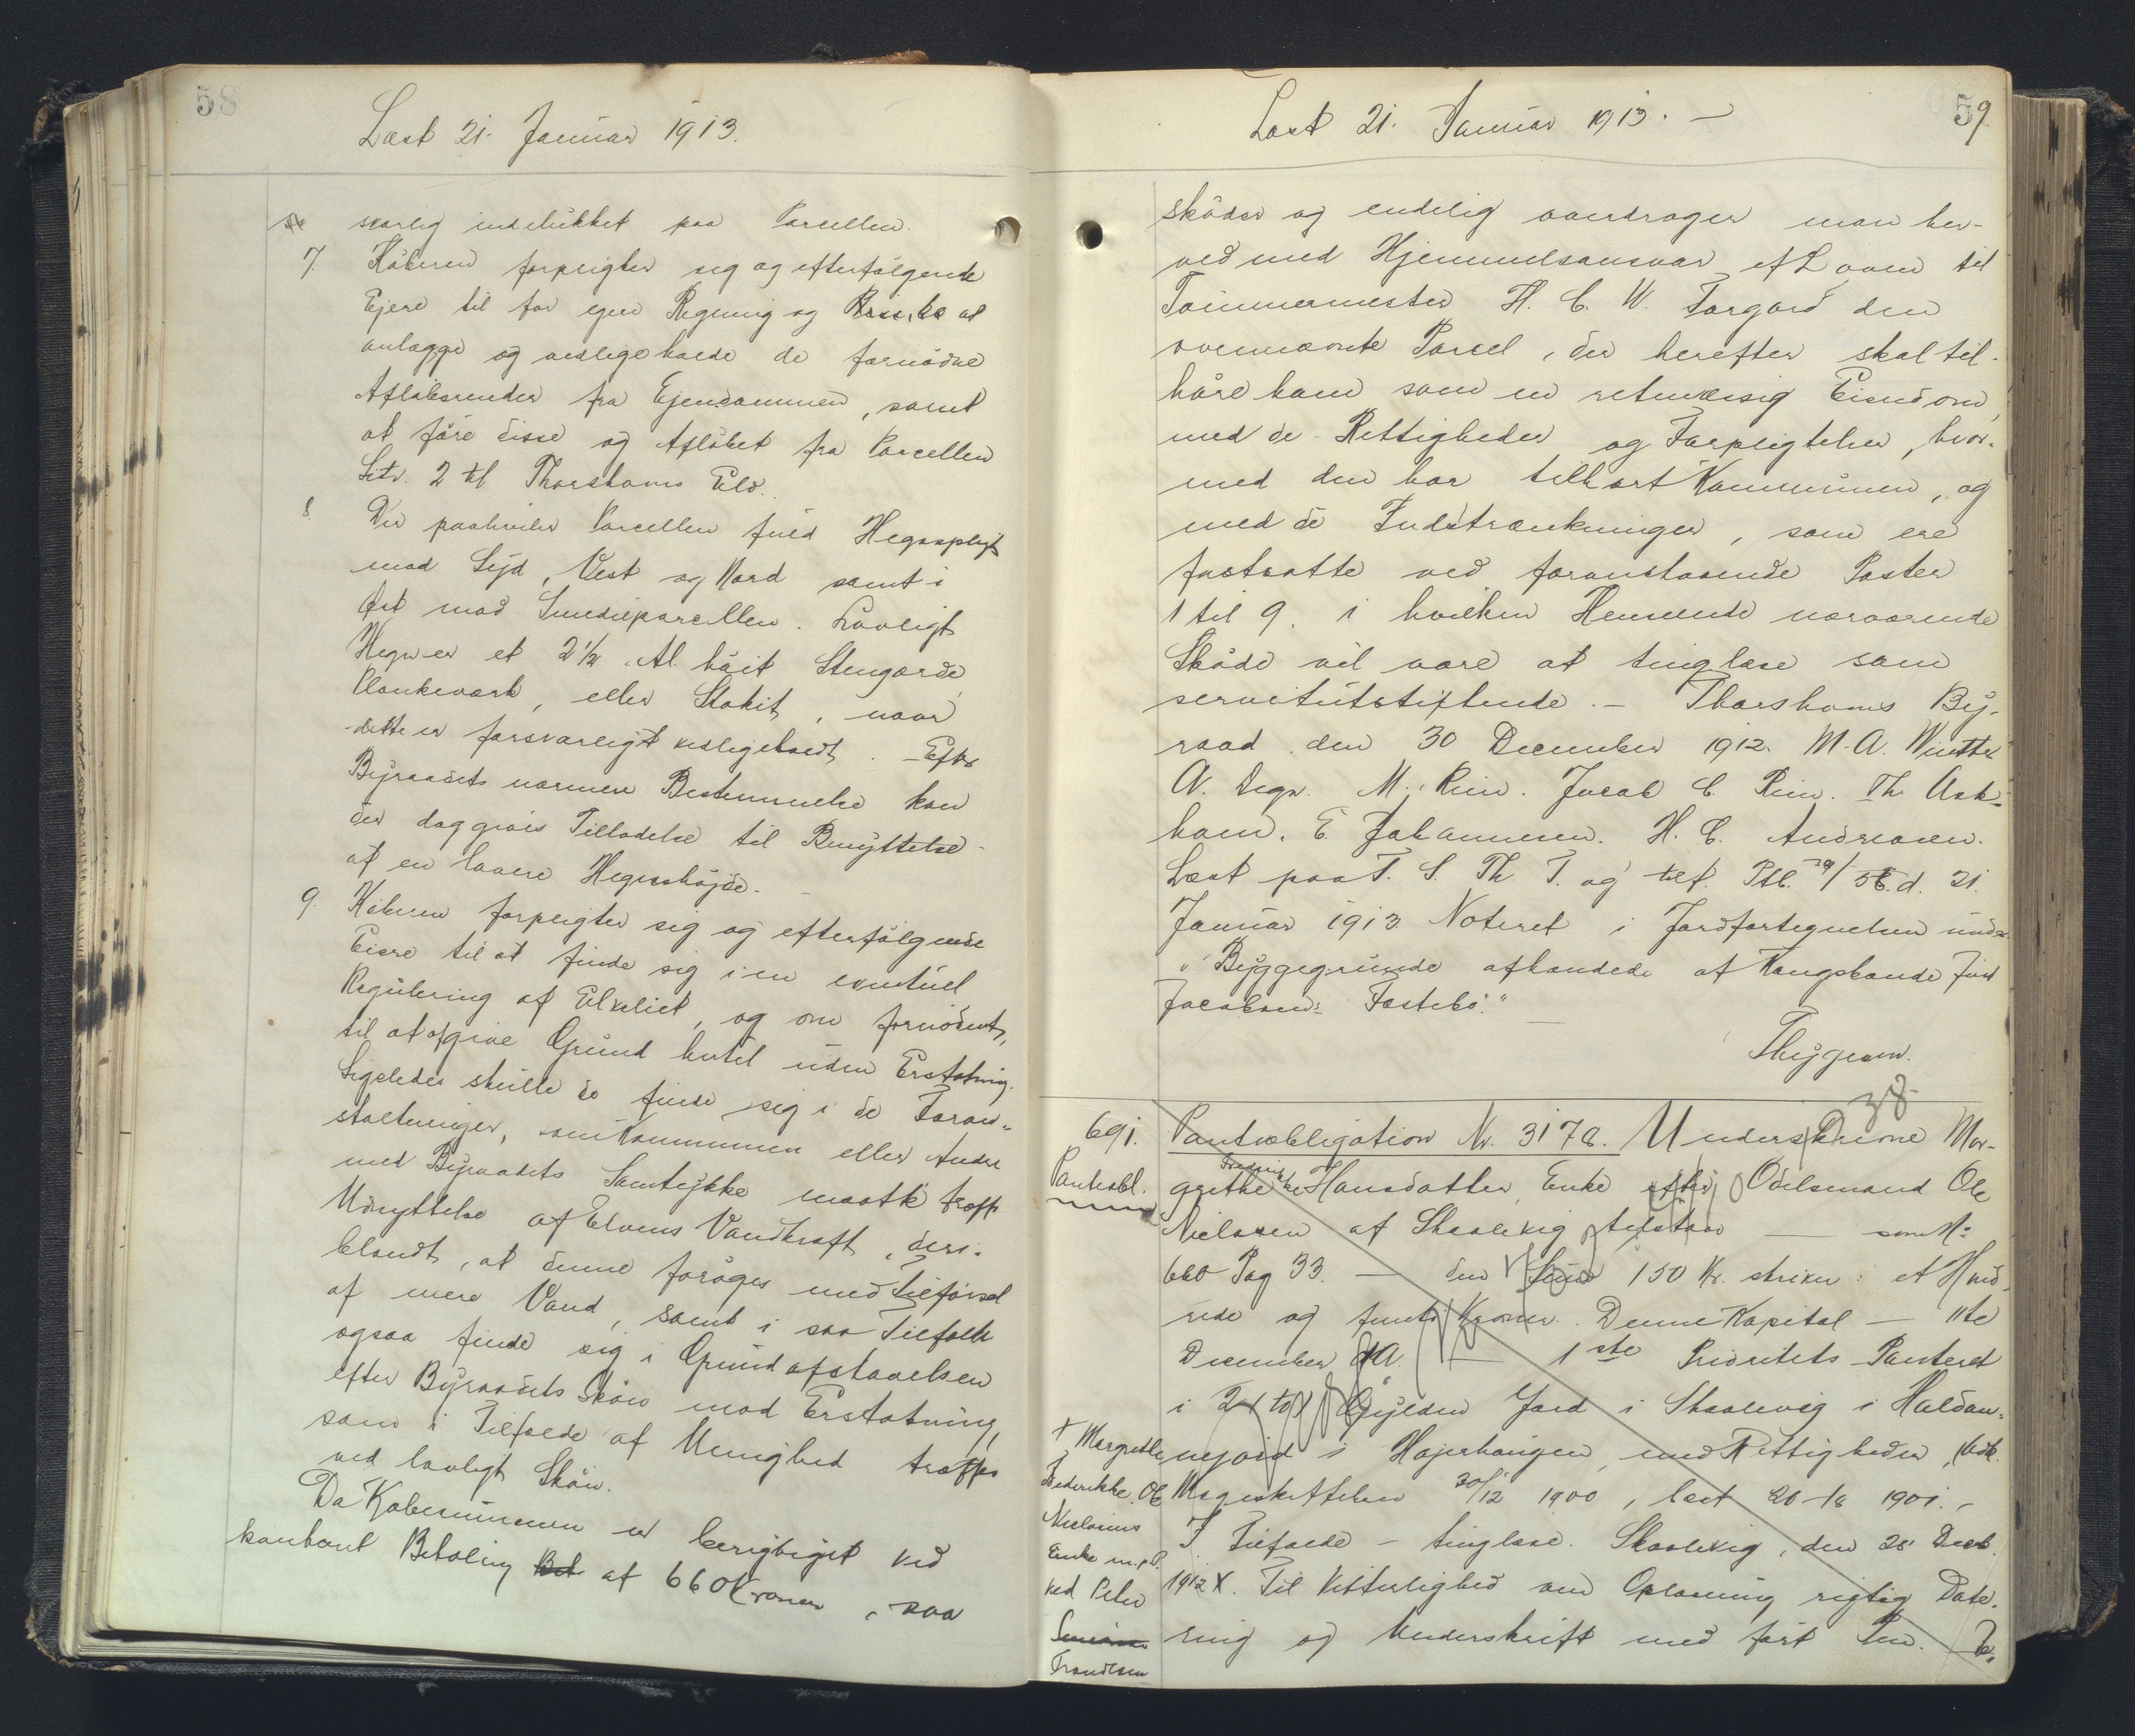 58
Læst 21. Januar 1913.
svarlig indelukket paa Parcellen.
7. Køberen forpligter sig og efterfølgende
Ejere til for egen Regning og Risiko at
anlægge og vedligeholde de fornødne
Afløbsrender fra Ejendommen, samt
at føre disse og Afløbet fra Parcellen
Litr. 2 til Thorshavns Elv.
8. Der paahviler Parcellen fuld Hegnspligt
mod Syd, Vest og Nord samt i
Øst mod Smedieparcellen. Lovligt
Hegn er et 2½ Al. høit Stengærde,
Plankeværk, eller Stakit, naar
dette er forsvarligt vedligeholdt. – Efter
Byraadets nærmere Bestemmelse kan
der dog gives Tilladelse til Benyttelse
af en lavere Hegnshøjde.
9. Køberen forpligter sig og efterfølgende
Eiere til at finde sig i en eventuel
Regulering af Elvelejet, og om fornødent,
til at afgive Grund hertil uden Erstatning.
Ligeledes skulle de finde sig i de Foran-
staltninger, som Kommunen eller Andre
med Byraadets Samtykke maatte træffe
Udnyttelse af Elvens Vandkraft, deri-
blandt, at denne forøges med Tilførsel
af mere Vand, samt i saa Tilfælde
ogsaa finde sig i Grundafstaaelsen
efter Byraadets Skøn mod Erstatning,
som i Tilfælde af Uenighed træffes
ved lovligt Skøn.
Da Købesummen er berigtiget ved
kontant Betaling af 660 Kroner, saa
59
Læst 21. Januar 1913. –
skøder og endelig overdrager man her-
ved med Hjemmelsansvar ef. Loven til
Tømmermester H. C. W. Torgard den
ovennævnte Parcel, der herefter skal til-
høre ham som en retmæssig Eiendom,
med de Rettigheder og Forpligtelser, hvor-
med den har tilhørt Kommunen, og
med de Indskrænkninger, som ere
fastsatte ved foranstaaende Poster
1 til 9. i hvilken Henseende nærværende
Skøde vil være at tinglæse som
servitutstiftende. – Thorshavns By-
raad, den 30 December 1912. M. A. Winther
A. Degn. M. Rein. Jacob C. Rein. Th. Ask-
ham. E. Johannesen. H. C. Andreasen.
Læst paa T. S. Th. T. og tilf. Ptb. 29/56. d. 21.
Januar 1913. Noteret i Jordfortegnelsen under
"Byggegrunde afhændede af Kongsbonde Just
Jacobsens Fæstebø." –
Thygesen.
38
691. Pantobligation Nr. 3178. Underskrevne Mar-
Pantobl. grethe Frederikke Hansdatter, Enke efter Odelsmand Ole
Nielssen af Skaalevig tilstaar — som Nr
660 Pag 33. — den Sum 150 Kr. skriver: et Hund-
rede og femti Kroner. Denne Kapital — 11te
December d. A. — 1ste Prioritets Panteret
i 2 Gylden Jord i Skaalevig i Haldan-
nejord i Højerhaugen, med Rettigheder, Adk.
Mageskiftebrev 30/12 1900, læst 20-/8 1901. –
I Tilfælde – tinglæse. Skaalevig, den 28' Decb.
1912 X. Til Vitterlighed om Oplæsning rigtig Date-
ring og Underskrift med ført Pen.
+ Margrethe
Frederikke, Ole
Nielsens
Enke m. p. P.
ved Peter
Trondesen